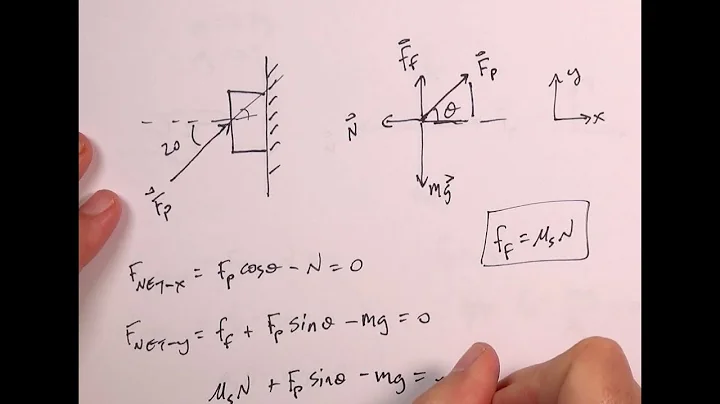 F⃗f
F⃗p
y
θ
x
N⃗
20
mg⃗
F⃗p
fF = μsN
FNET-x = Fp cosθ - N = 0
FNET-y = ff + Fp sinθ - mg = 0
μsN + Fp sinθ - mg =